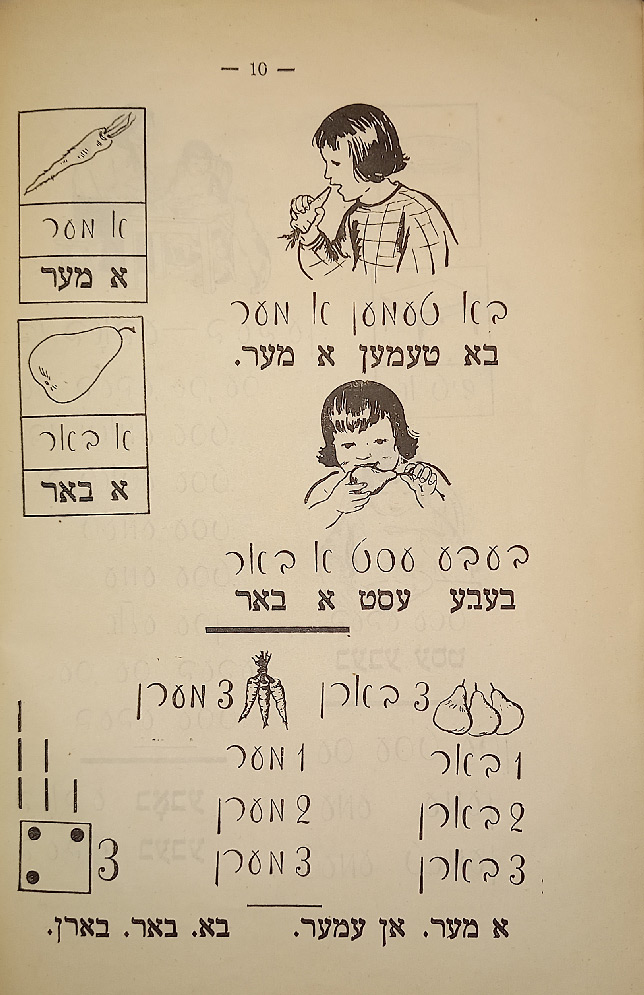 — 10 —
א מער
א מער
בא טעמען א מער
בא טעמען א מער.
א באר
א באר
בעבע עסט א באר
בעבע עסט א באר
3 בארן 3 מערן
1 באר 1 מער
2 בארן 2 מערן
3 בארן 3 מערן
3
א מער. אן עמער. בא. באר. בארן.